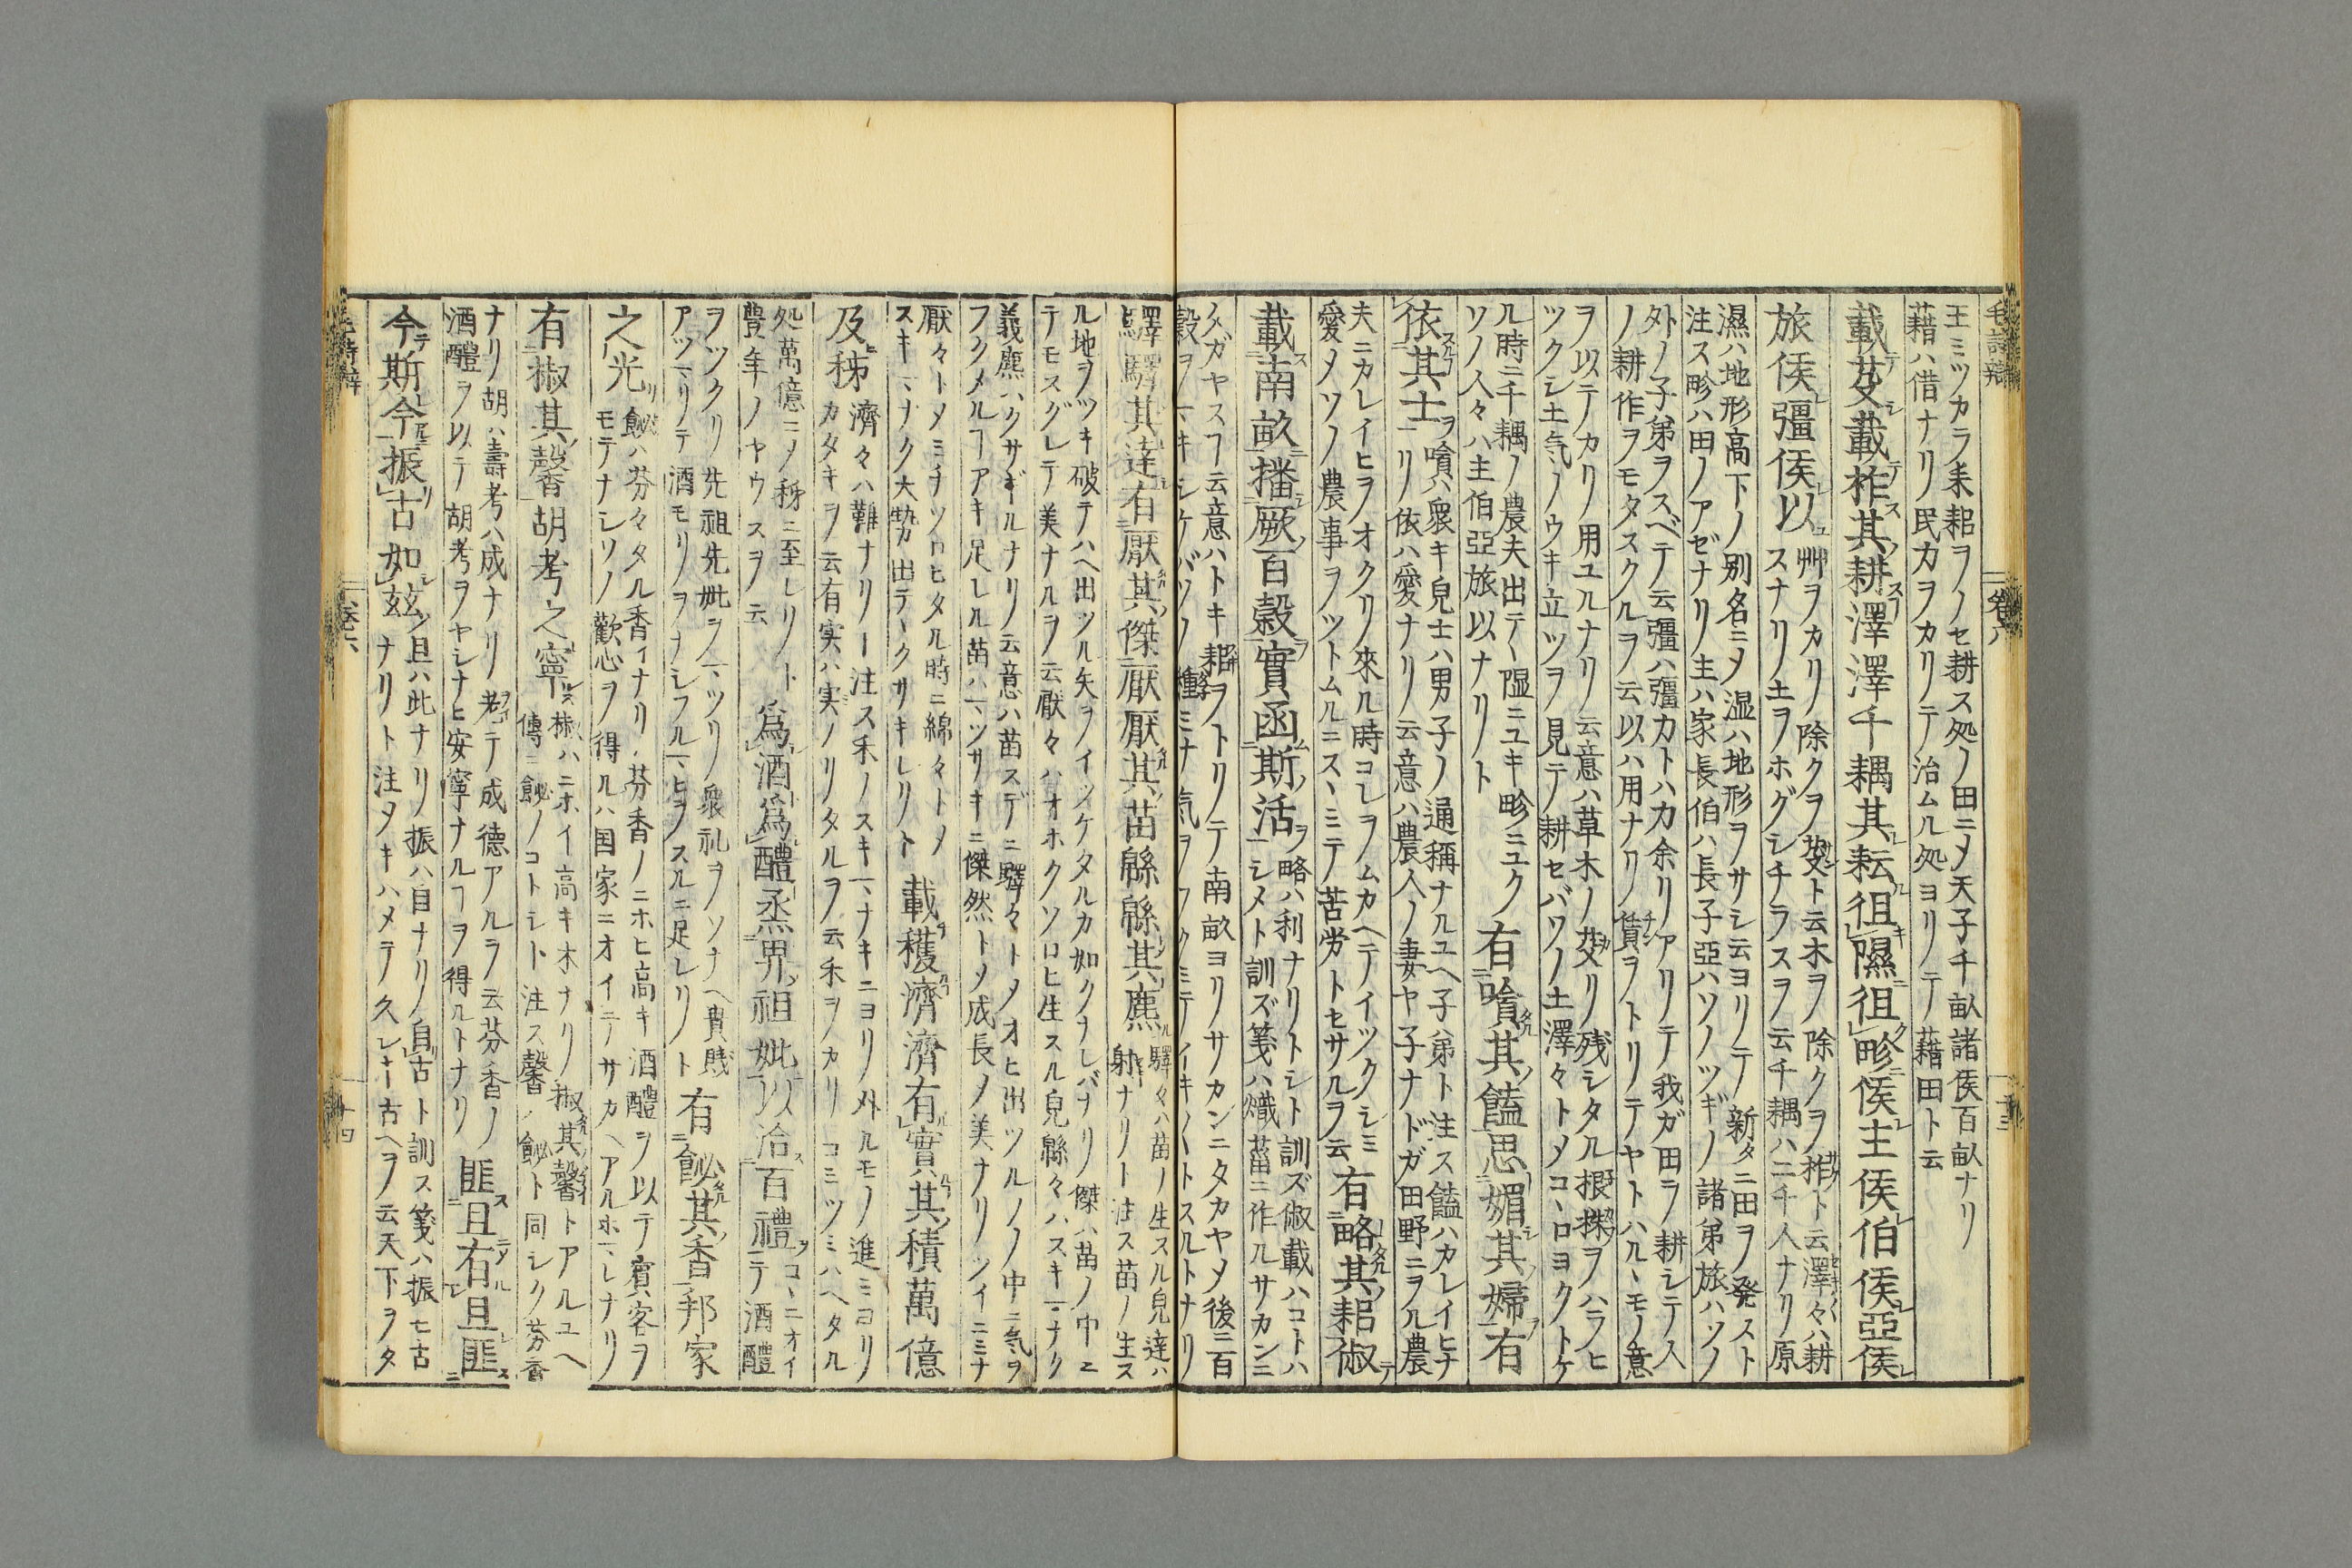 毛詩辯 巻八 十三
王ミツカラ耒耜ヲノセ耕ス処ノ田ニメ天子千畝諸侯百畝ナリ
藉ハ借ナリ民力ヲカリテ治ムル処ヨリノテノ藉田ト云
載芟載柞其耕澤澤千耦其耘徂隰徂畛侯主侯伯侯亞侯
旅侯彊侯以
艸ヲカリノ除クヲ芟ト云木ヲノ除クヲ柞ト云澤々ハ耕
スナリノ土ヲホグシチラスヲ云千耦ハ二千人ナリ原
濕ハ地形高下ノ別名ニメ湿ハ地形ヲサシ云ヨリノテノ新タニ田ヲノ発スト
注ス畛ハ田ノアゼナリノ主ハ家長伯ハ長子亞ハソノツギノ諸弟旅ハソノ
外ノ子弟ヲスベテ云彊ハ彊力トハ力余リノアリテノ我ガ田ヲノ耕シテス人
ノ耕作ヲモタスクルヲノ云以ハ用ナリノ賃ヲノトリテヤトハルヽモノ意
ヲ以テノカリノ用ユルナリノ云意ハ草木ノ芟リノ残シタル根ヲハラヒ
ツクシ土気ノウキ立ツヲノ見テノ耕セバソノ土澤々トメコヽロヨクノトケ
ル時ニ千耦ノ農夫出テヽ隰ニユキ畛ニユクノ
ソノ人々ハ主伯亞旅以ナリノト
有嗿其饁思媚其婦有
依其士
嗿ハ衆キ皃士ハ男子ノ通稱ナルユヘ子弟ト注ス饁ハカレイヒナ
リノ依ハ愛ナリノ云意ハ農人ノ妻ヤ子ナドガ田野ニヲル農
夫ニカレイヒヲノオクリノ來ル時コレヲノムカヘテノイツクシミ
愛メノソノ農事ヲノツトムルニスヽミテノ苦労トセサルヲノ云
有略其耜俶
載南畝播厥百穀實函斯活
略ハ利ナリノトシト訓ズ俶載ハコトハ
シメト訓ズ箋ハ熾菑ニ作ルサカンニ
タガヤスヿ云意ハトキ耜ヲノトリノテ南畝ヨリノサカンニタカヤメノ後ニ百
穀ヲノマキシケバソノ種ミナ気ヲノフクミテノイキノヽトスルトナリ
驛驛其達有厭其傑厭厭其苗緜緜其麃
驛々ハ苗ノ生スル皃達ハ
射ナリノト注ス苗ノ生ス
ル地ヲノツキ破テノハヘ出ツル矢ヲノイツケタルカ如クヲシバナリノ傑ハ苗ノ中ニ
テモスグレテノ美ナルヲノ云厭々ハオホクソロヒ生スル皃緜々ハスキマナク
義麃ハクサギルナリノ云意ハ苗スデニ驛々トメノオヒ出ツルノ中ニ気ヲ
フクメルヿアキ足レル苗ハマツサキニ傑然トメノ成長ノ美ナリノツイニミナ
厭々トメミチソロヒタル時ニ綿々トメ
スキマナク大勢力出テヽクサキレリト
載穫濟濟有實其積萬億
及秭
濟々ハ難ナリノ一注ス禾ノスキマナキニヨリノメルモノノ進ミヨリノ
カタキヲノ云有実ハ実ノリタルヲノ云禾ヲノカリノコミツミハヘタル
処萬億ニメ秭ニ至レリノト
豊年ノヤウスヲノ云
爲酒爲醴烝畀祖妣以洽百禮
コヽニオイ
テノ酒醴
ヲツクリノ先祖先妣ヲノマツリノ衆礼ヲノソナヘ貴賎
アツマリテノ酒モリヲノナシフルマヒヲノスルニ足レリノト
有飶其香邦家
之光
飶ハ芬々タル香イナリノ芬香ノニホヒ高キ酒醴ヲノ以テノ賓客ヲ
モテナシソノ歡心ヲノ得ルハ国家ニオイテノサカヘアルホマレナリノ
有椒其馨胡考之寧
椒ハニホイ高キ木ナリノ椒其馨トアルユヘ
傳ニ飶ノコトシト注ス馨ノ飶ト同シク芬香
ナリノ胡ハ壽考ハ成ナリノ老テ成德アルヲノ云芬香ノ
酒醴ヲノ以テノ胡考ヲノヤシナヒ安寧ナルヿヲノ得ルトナリ
匪且有且匪
今斯今振古如茲
且ハ此ナリノ振ハ自ナリノ自古ト訓ス箋ハ振モ古
ナリノト注メキハメテノ久シキ古ヘヲノ云天下ヲノタ
毛詩辯 巻八 十四